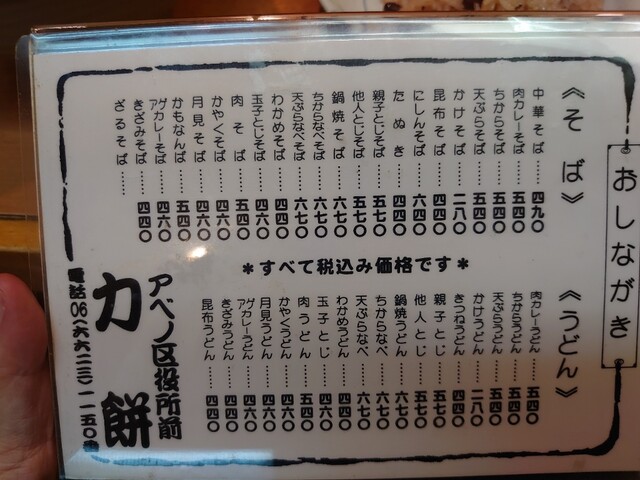 おしながき
《そば》
中華そば……四九〇
肉カレーそば……五四〇
ちからそば……五四〇
天ぷらそば……五四〇
かけそば……二八〇
昆布そば……四四〇
にしんそば……六四〇
たぬき……四四〇
親子とじそば……五七〇
他人とじそば……五七〇
鍋焼そば……六七〇
ちからなべそば……六七〇
天ぷらなべそば……六七〇
わかめそば……四四〇
玉子とじそば……四六〇
肉そば……五四〇
かやくそば……四六〇
月見そば……四六〇
かもなんば……五四〇
アゲカレーそば……四六〇
きざみそば……四四〇
ざるそば……
*すべて税込み価格です*
《うどん》
肉カレーうどん……五四〇
ちからうどん……五四〇
天ぷらうどん……五四〇
かけうどん……二八〇
きつねうどん……四四〇
親子とじ……五七〇
他人とじ……五七〇
鍋焼うどん……六七〇
ちからなべ……六七〇
天ぷらなべ……六七〇
わかめうどん……四四〇
玉子とじ……四六〇
肉うどん……五四〇
かやくうどん……四六〇
月見うどん……四六〇
アゲカレーうどん……四六〇
きざみうどん……四四〇
昆布うどん……四四〇
アベノ区役所前
力餅
電話06(六六二三)一一五〇番